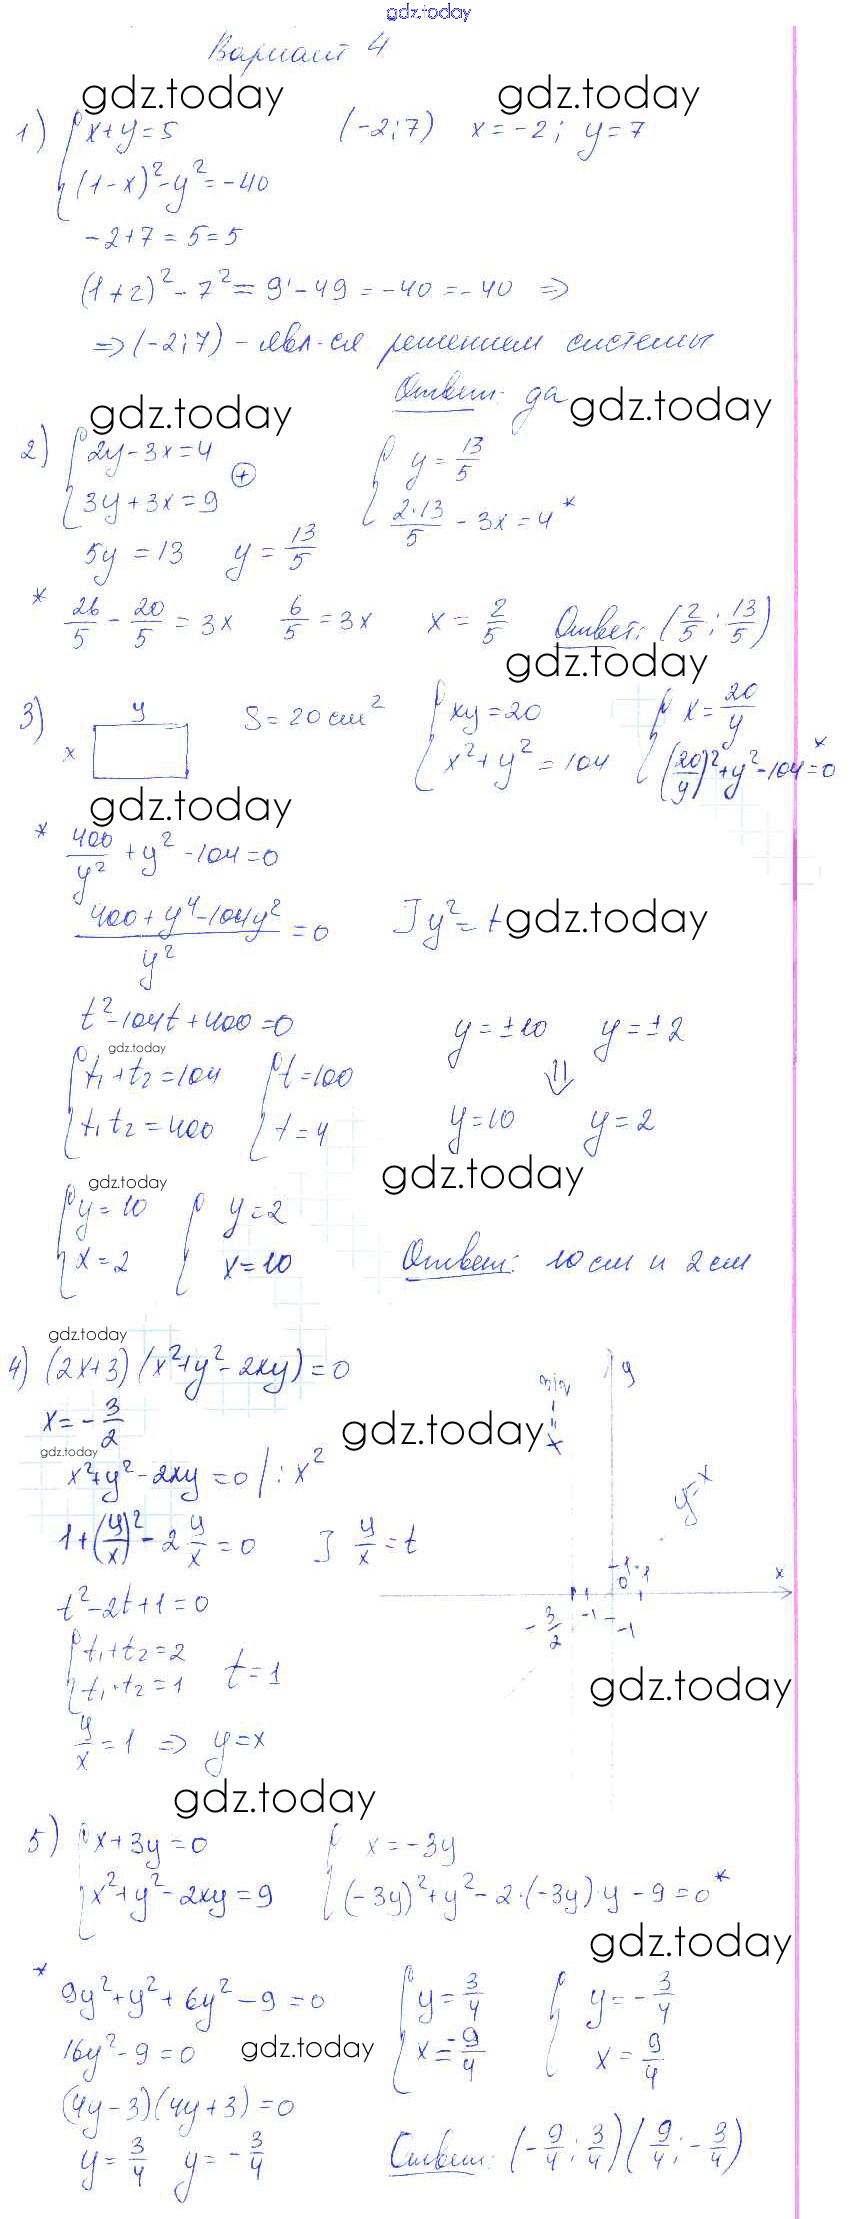 gdz.today
Вариант 4
gdz.today gdz.today
1) { x+y=5 (-2;7) x=-2; y=7
(1-x)²-y²=-40
-2+7=5=5
(1+2)²-7²=9-49=-40=-40 ⇒
⇒(-2;7) - явл-ся решением системы
Ответ: да
gdz.today gdz.today
2) { 2y-3x=4 ⊕ { y=13/5
3y+3x=9 2·13/5 - 3x=4 *
5y=13 y=13/5
* 26/5 - 20/5 = 3x 6/5 = 3x x = 2/5 Ответ: (2/5; 13/5)
gdz.today
3) y S=20см² { xy=20 { x=20/y
x x²+y²=104 (20/y)²+y²-104=0 *
gdz.today
* 400/y² + y² -104=0
(400+y⁴-104y²)/y² = 0 ] y²=t
gdz.today
t²-104t+400=0 y=±10 y=±2
gdz.today
{ t₁+t₂=104 { t=100 ⇓
t₁t₂=400 t=4 y=10 y=2
gdz.today gdz.today
{ y=10 { y=2
x=2 x=10 Ответ: 10см и 2см
gdz.today
4) (2x+3)(x²+y²-2xy)=0 y
x=-3/2 x=-3/2
gdz.today gdz.today
x²+y²-2xy=0 |:x² y=x
1+(y/x)²-2 y/x=0 ] y/x=t
1 1 x
0
t²-2t+1=0 -3/2 -1 -1
{ t₁+t₂=2
t₁·t₂=1 t=1
gdz.today
y/x=1 ⇒ y=x
gdz.today
5) { x+3y=0 { x=-3y
x²+y²-2xy=9 (-3y)²+y²-2·(-3y)·y-9=0 *
gdz.today
* 9y²+y²+6y²-9=0 { y=3/4 { y=-3/4
16y²-9=0 gdz.today x=-9/4 x=9/4
(4y-3)(4y+3)=0
y=3/4 y=-3/4 Ответ: (-9/4; 3/4)(9/4; -3/4)